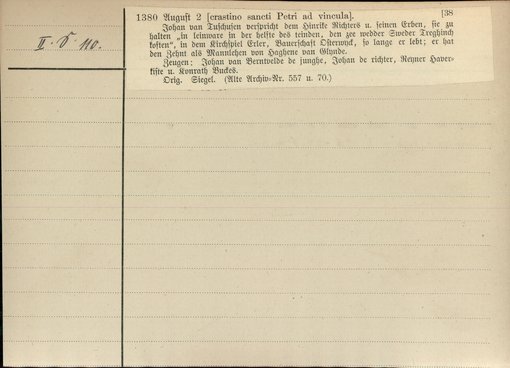 1380 August 2 [crastino sancti Petri ad vincula]. [38
II. 110.
Johan van Tuschusen verspricht dem Hinrike Richters u. seinen Erben, sie zu
halten „in leinware in der helfte des teinden, den zee wedder Sweder Treghinch
kosten“, in dem Kirchspiel Erler, Bauerschaft Osterwyck, so lange er lebt; er hat
den Zehnt als Mannlehen von Haghene van Glynde.
Zeugen: Johan van Berntvelde de junghe, Johan de richter, Reyner Haver-
kiste u. Konrath Buckes.
Orig. Siegel. (Alte Archiv-Nr. 557 u. 70.)